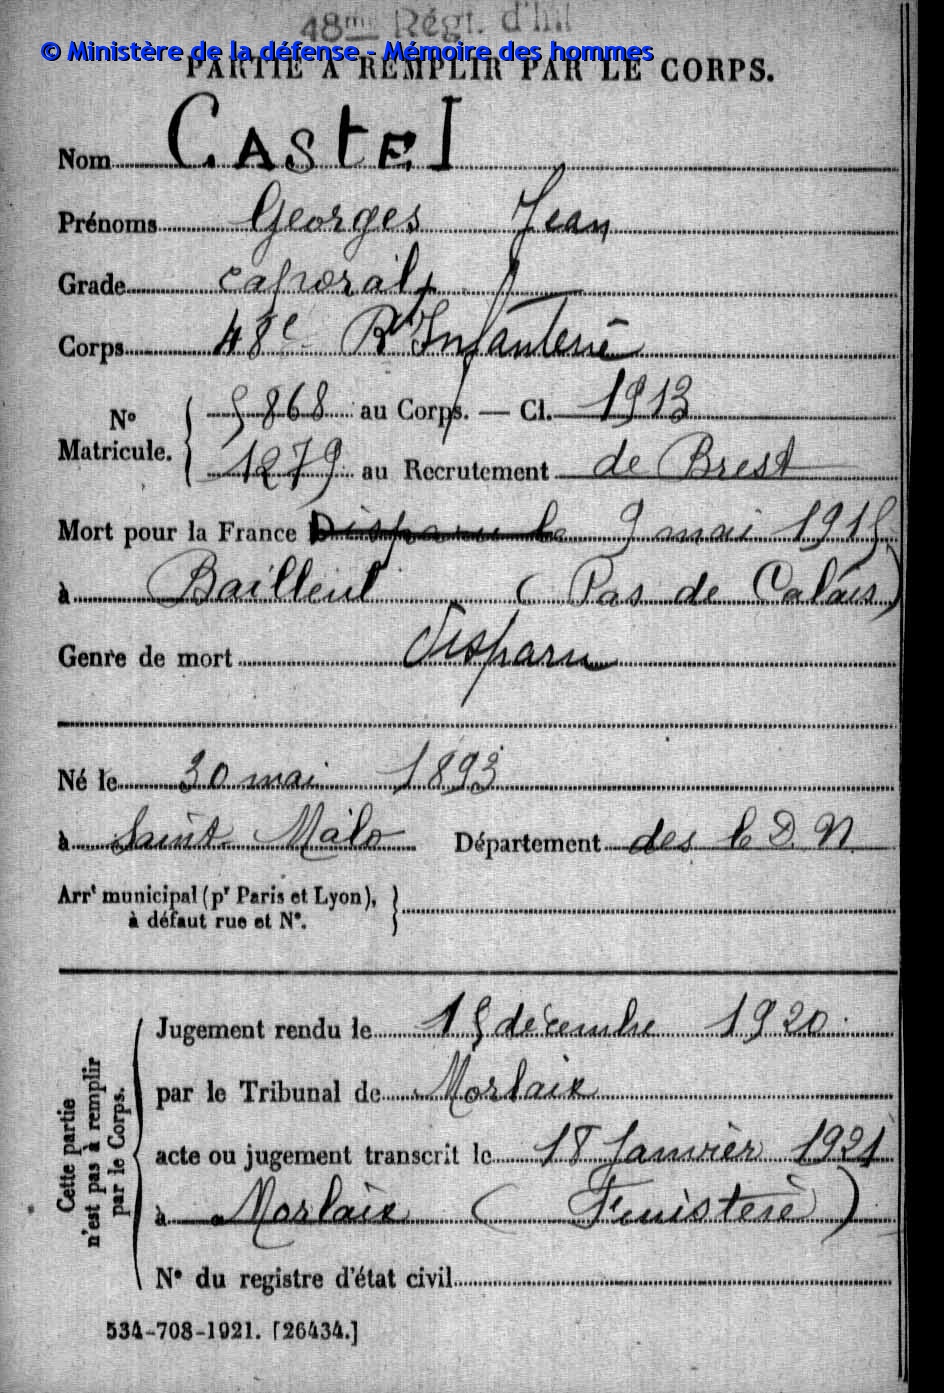 48me Régt. d'Inf
© Ministère de la défense - Mémoire des hommes
PARTIE À REMPLIR PAR LE CORPS.
Nom CASTEL
Prénoms Georges Jean
Grade caporal
Corps 48e Rt Infanterie
No Matricule. 5868 au Corps. — Cl. 1913
1279 au Recrutement de Brest
Mort pour la France Disparu le 9 mai 1915
à Bailleul (Pas de Calais)
Genre de mort disparu
Né le 30 mai 1893
à Saint Malo Département des C. D. N.
Arrt municipal (pr Paris et Lyon),
à défaut rue et No.
Cette partie
n'est pas à remplir
par le Corps.
Jugement rendu le 15 décembre 1920.
par le Tribunal de Morlaix
acte ou jugement transcrit le 18 Janvier 1921
à Morlaix (Finistère)
No du registre d'état civil
534-708-1921. [26434.]